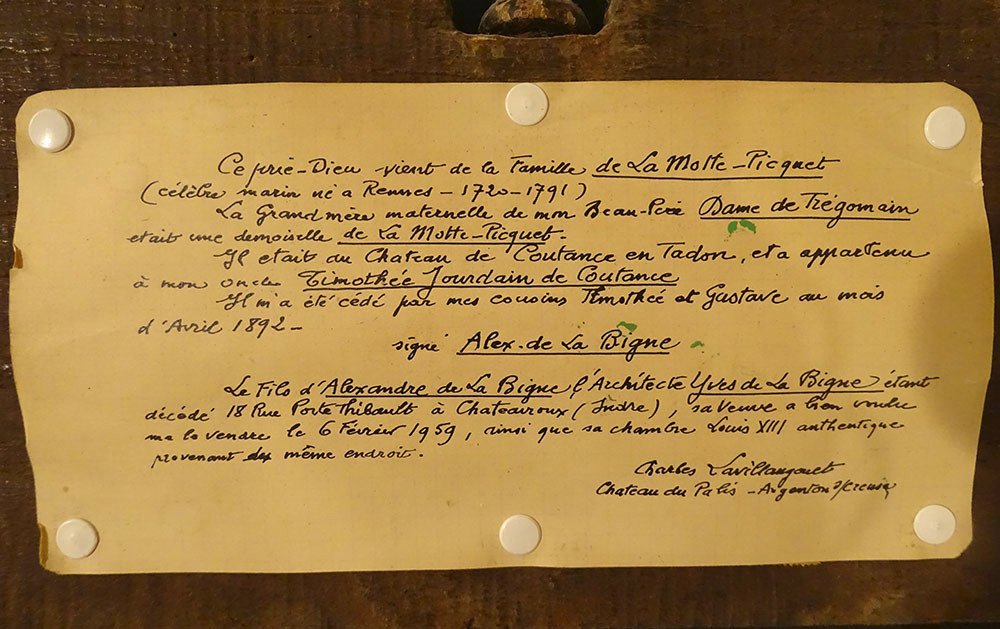 Ce prié-Dieu vient de la Famille de La Motte-Picquet
(célèbre marin né a Rennes - 1720-1791)
La Grand mère maternelle de mon Beau-Père Dame de Trégomain
était une demoiselle de La Motte-Picquet.
Il était au Chateau de Coutance en Tadon, et a appartenu
à mon oncle Timothée Jourdain de Coutance
Il m'a été cédé par mes cousins Timothée et Gustave au mois
d'Avril 1892-
signé Alex. de La Bigne
Le Fils d'Alexandre de La Bigne l'Architecte Yves de La Bigne étant
décédé 18 Rue Porte Thibault à Chateauroux (Indre), sa veuve a bien voulu
me le vendre le 6 Février 1959, ainsi que sa chambre Louis XIII authentique
provenant du même endroit.
Charles
Chateau du Palis - Argenton s/Creuse